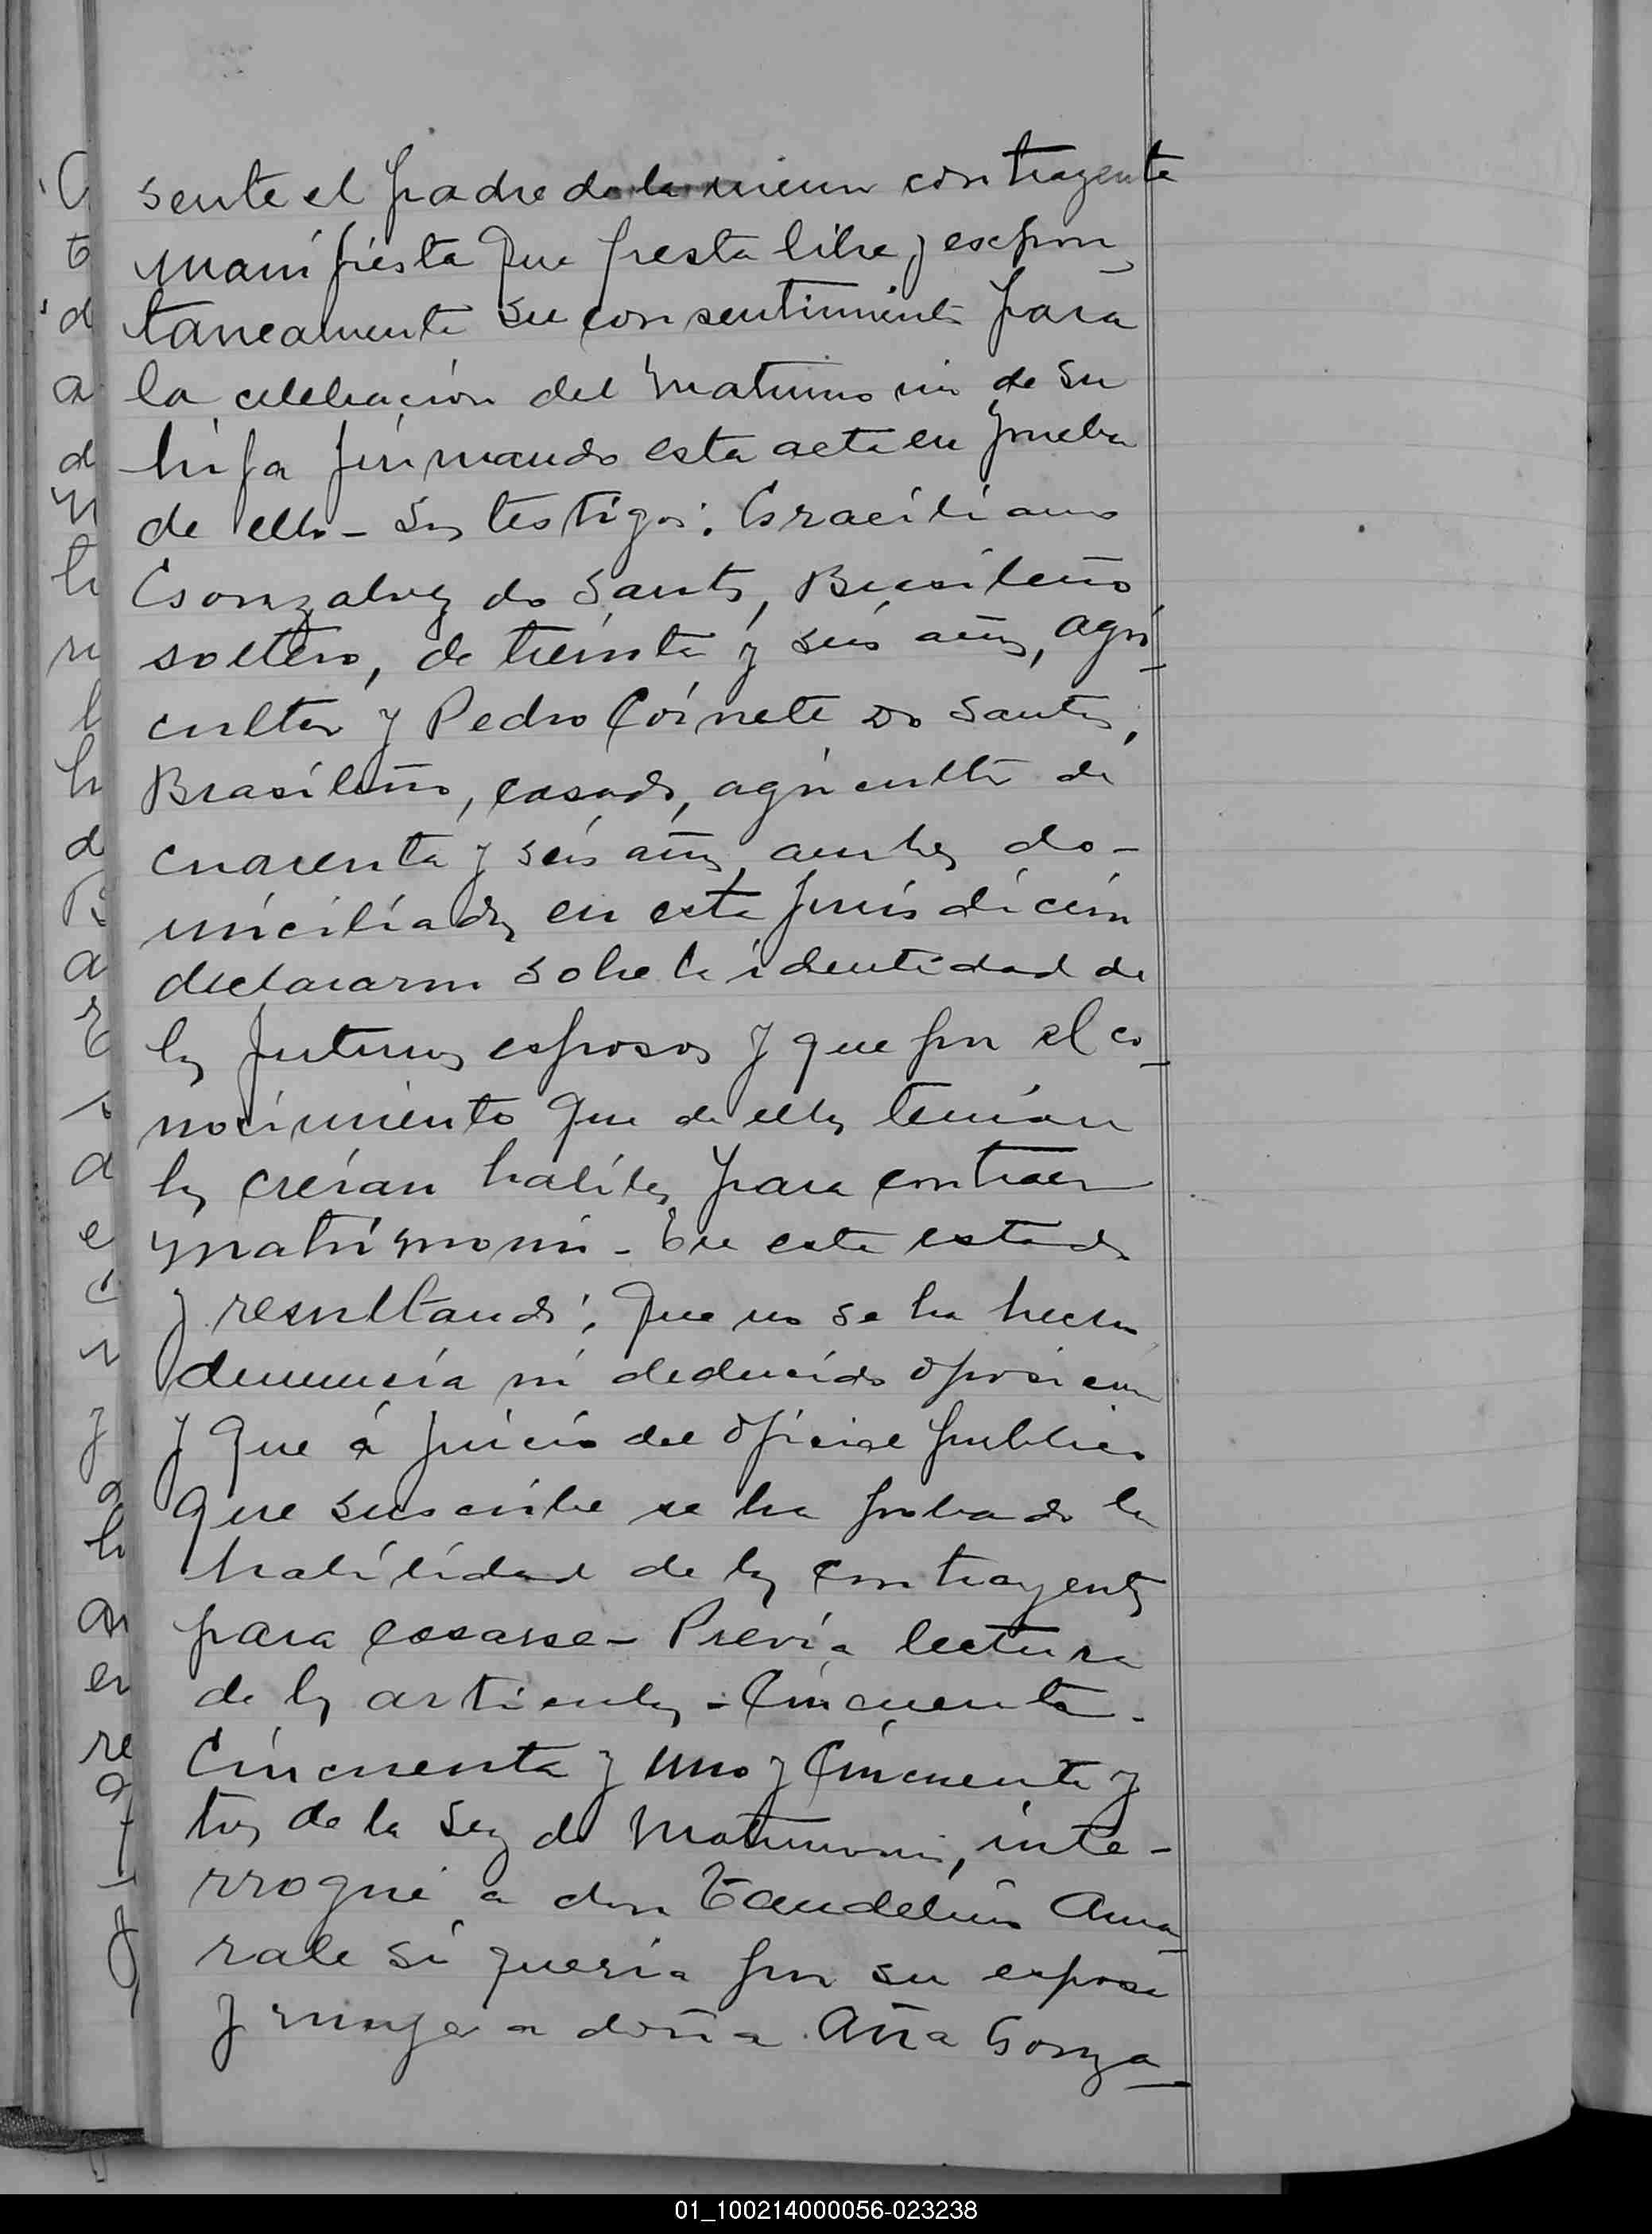 sente el padre de la misma contrayente
manifiesta que presta libre y espon
taneamente su consentimiento para
la celebracion del matrimonio de su
hija firmando esta acta en prueba
de ello - Los testigos: Graciliano
Gonzalvez do Santos, Brasileño
soltero, de treinta y seis años, agri_
cultor y Pedro Cornete Do Santos,
Brasileño, casado, agricultor de
cuarenta y seis años, ambos do-
miciliados en esta jurisdicion
declararon sobre la identidad de
los futuros esposos y que por el co_
nocimiento que de ellos tenian
los creian habiles para contraer
matrimonio - En este estado
y resultando: Que no se ha hecho
denuncia ni deducido oposicion
y que á juicio del oficial publico
que suscribe se ha probado la
habilidad de los contrayentes
para casarse - Previa lectura
de los articulos - Cincuenta -
Cincuenta y uno y Cincuenta y
tres de la Ley de Matrimonio, inte-
rrogué a don Candelino Ama_
rale si queria por su esposa
y muger a doña Ana Gonza_
01_100214000056-023238